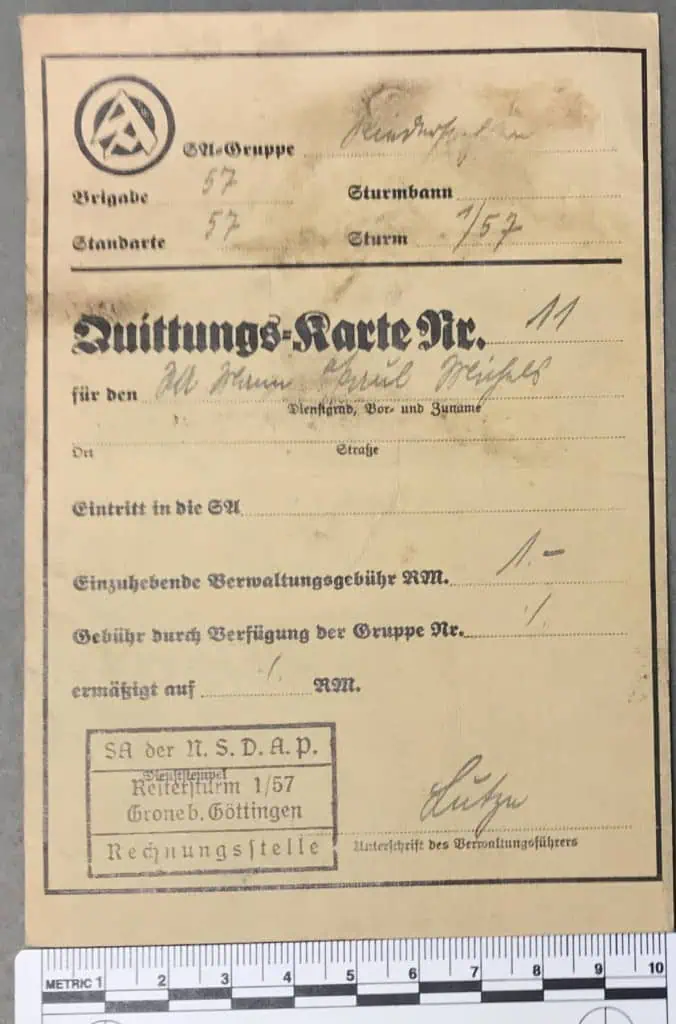 SA-Gruppe Niedersachsen
Brigade 57 Sturmbann
Standarte 57 Sturm 1/57
Quittungs-Karte Nr. 11
für den SA Mann Paul
Dienstgrad, Vor- und Zuname
Ort Straße
Eintritt in die SA
Einzuhebende Verwaltungsgebühr RM. 1.-
Gebühr durch Verfügung der Gruppe Nr. ·/.
ermäßigt auf ·/. RM.
SA der N.S.D.A.P.
Dienststempel
Reitersturm 1/57
Grone b. Göttingen
Rechnungsstelle
Unterschrift des Verwaltungsführers
METRIC 1 2 3 4 5 6 7 8 9 10